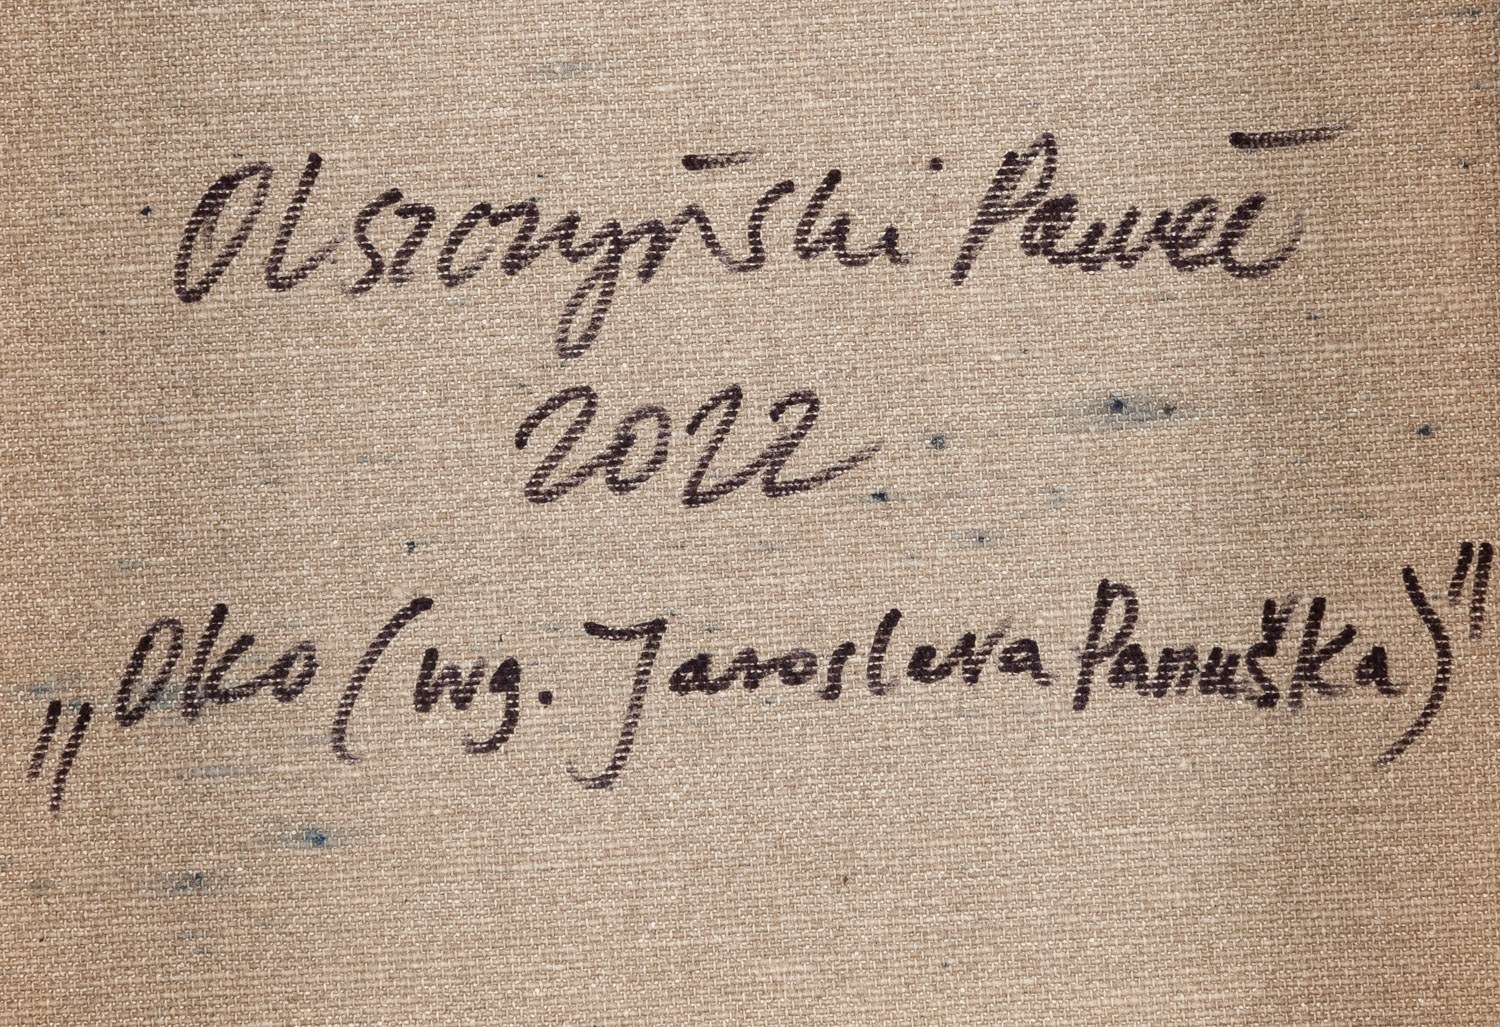 Olszczyński Paweł
2022
„Oko (wg. Jaroslava Panuška)"